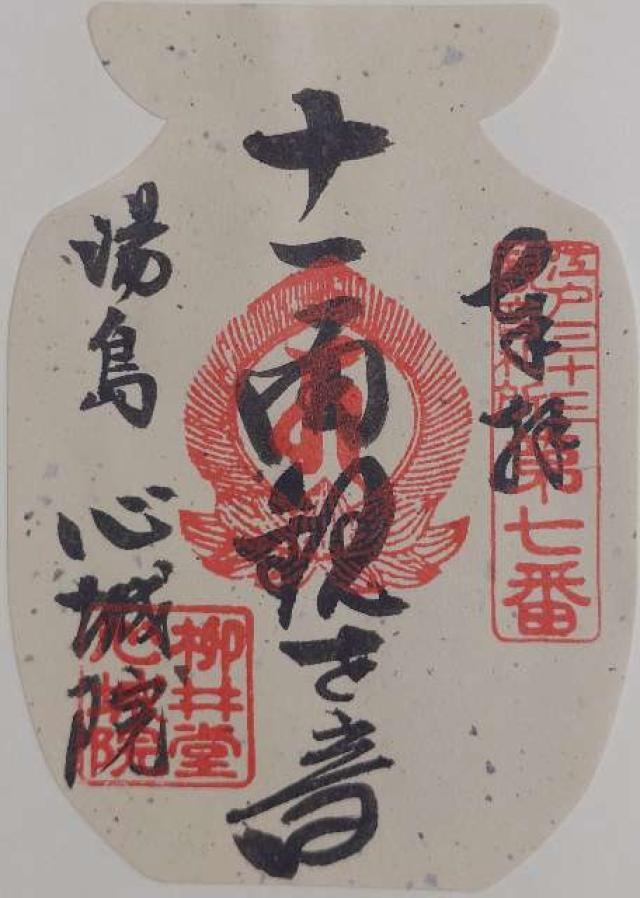 奉拝
江戸三十三
観音札所
第七番
十一面観世音
湯島 心城院
柳井堂
心城院